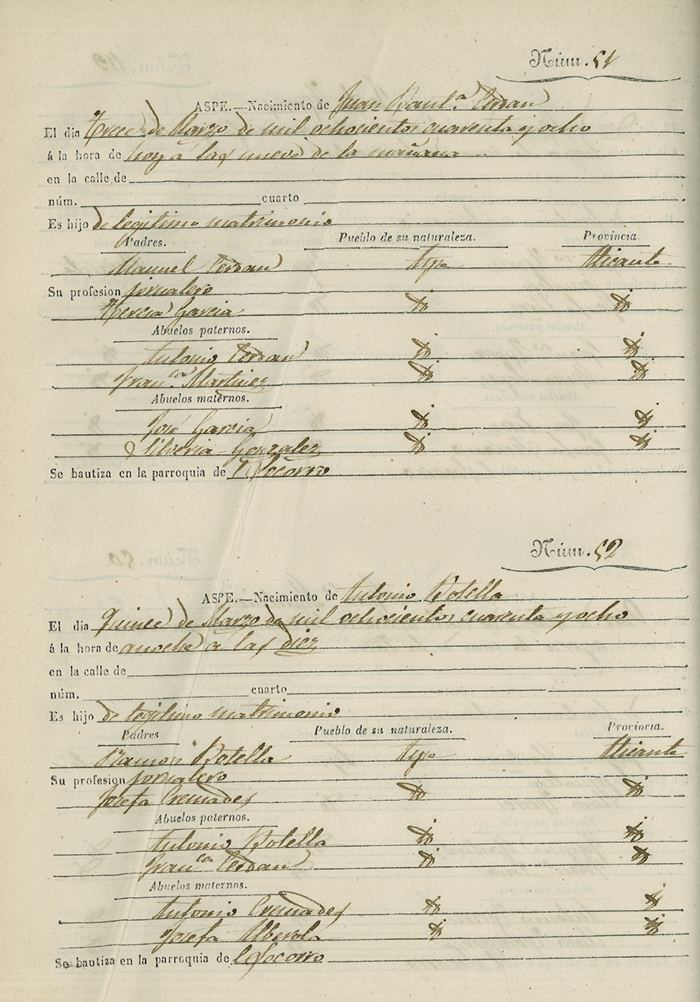 Núm. 51
ASPE.—Nacimiento de Juan Bautª Cerdan
El dia trece de Marzo de mil ochocientos cuarenta y ocho
á la hora de hoy á las nueve de la mañana
en la calle de
núm. cuarto
Es hijo de legitimo matrimonio
Padres. Pueblo de su naturaleza. Provincia
Manuel Cerdan Aspe Alicante
Su profesion jornalero
Teresa Garcia
Abuelos paternos.
Antonio Cerdan
Franca Martinez
Abuelos maternos.
José Garcia
Silveria Gonzalez
Se bautiza en la parroquia de Socorro
Núm. 52
ASPE.—Nacimiento de Antonio Botella
El dia quince de Marzo de mil ochocientos cuarenta y ocho
á la hora de anoche á las diez
en la calle de
núm. cuarto
Es hijo de legitimo matrimonio
Padres Pueblo de su naturaleza. Provincia.
Ramon Botella Aspe Alicante
Su profesion jornalero
Josefa Cremades
Abuelos paternos.
Antonio Botella
Franca Cerdan
Abuelos maternos.
Antonio Cremades
Josefa Alberola
Se bautiza en la parroquia de Socorro